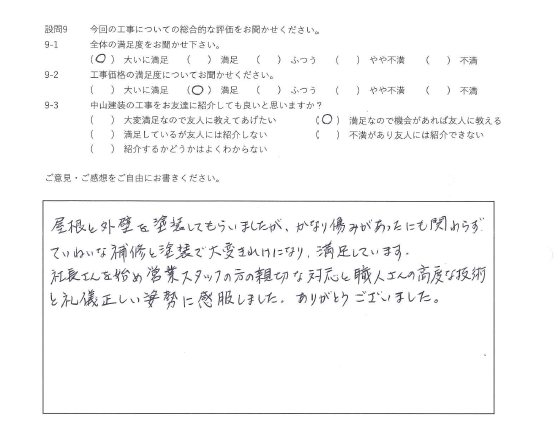 設問9　今回の工事についての総合的な評価をお聞かせください。
9-1　全体の満足度をお聞かせ下さい。
(○) 大いに満足　( ) 満足　( ) ふつう　( ) やや不満　( ) 不満
9-2　工事価格の満足度についてお聞かせください。
( ) 大いに満足　(○) 満足　( ) ふつう　( ) やや不満　( ) 不満
9-3　中山建装の工事をお友達に紹介しても良いと思いますか？
( ) 大変満足なので友人に教えてあげたい　(○) 満足なので機会があれば友人に教える
( ) 満足しているが友人には紹介しない　( ) 不満があり友人には紹介できない
( ) 紹介するかどうかはよくわからない
ご意見・ご感想をご自由にお書きください。
屋根と外壁を塗装してもらいましたが、かなり傷みがあったにも関わらず
ていねいな補修と塗装で大変きれいになり、満足しています。
社長さんを始め営業スタッフの方の親切な対応と職人さんの高度な技術
と礼儀正しい姿勢に感服しました。ありがとうございました。